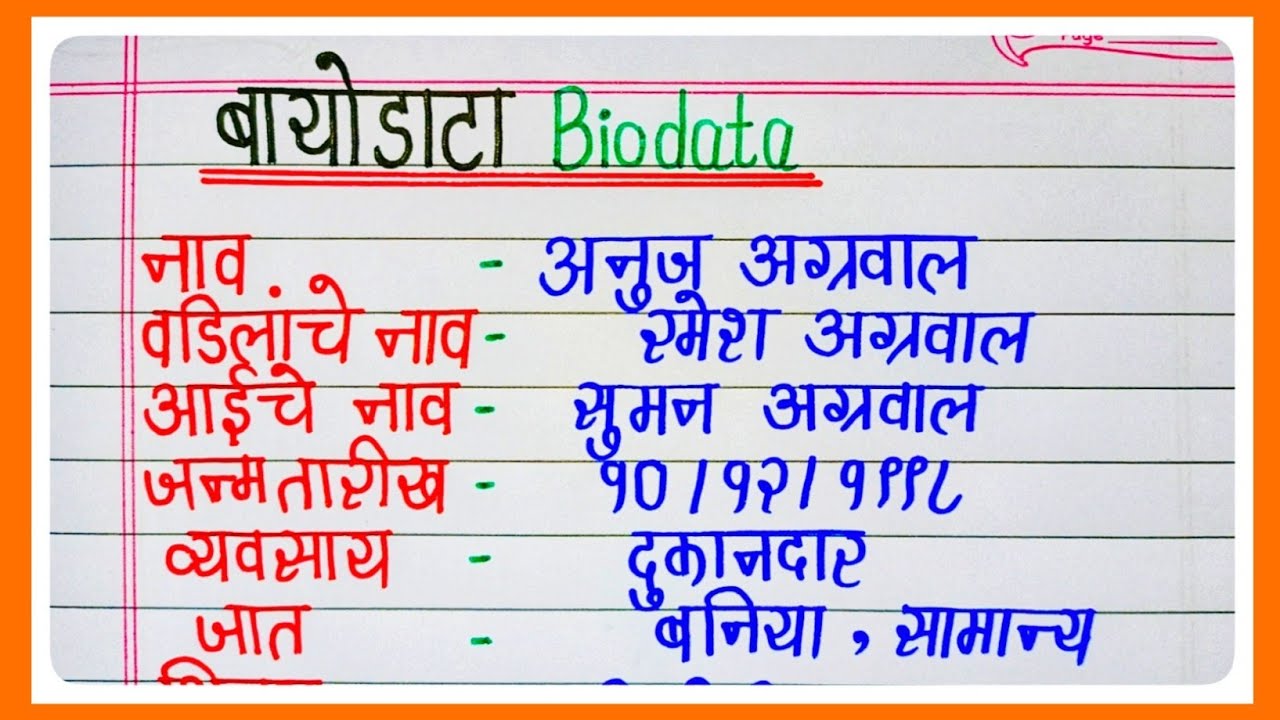 Page
बायोडाटा Biodata
नाव - अनुज अग्रवाल
वडिलांचे नाव - रमेश अग्रवाल
आईचे नाव - सुमन अग्रवाल
जन्मतारीख - १०/१२/१९९८
व्यवसाय - दुकानदार
जात - बनिया, सामान्य